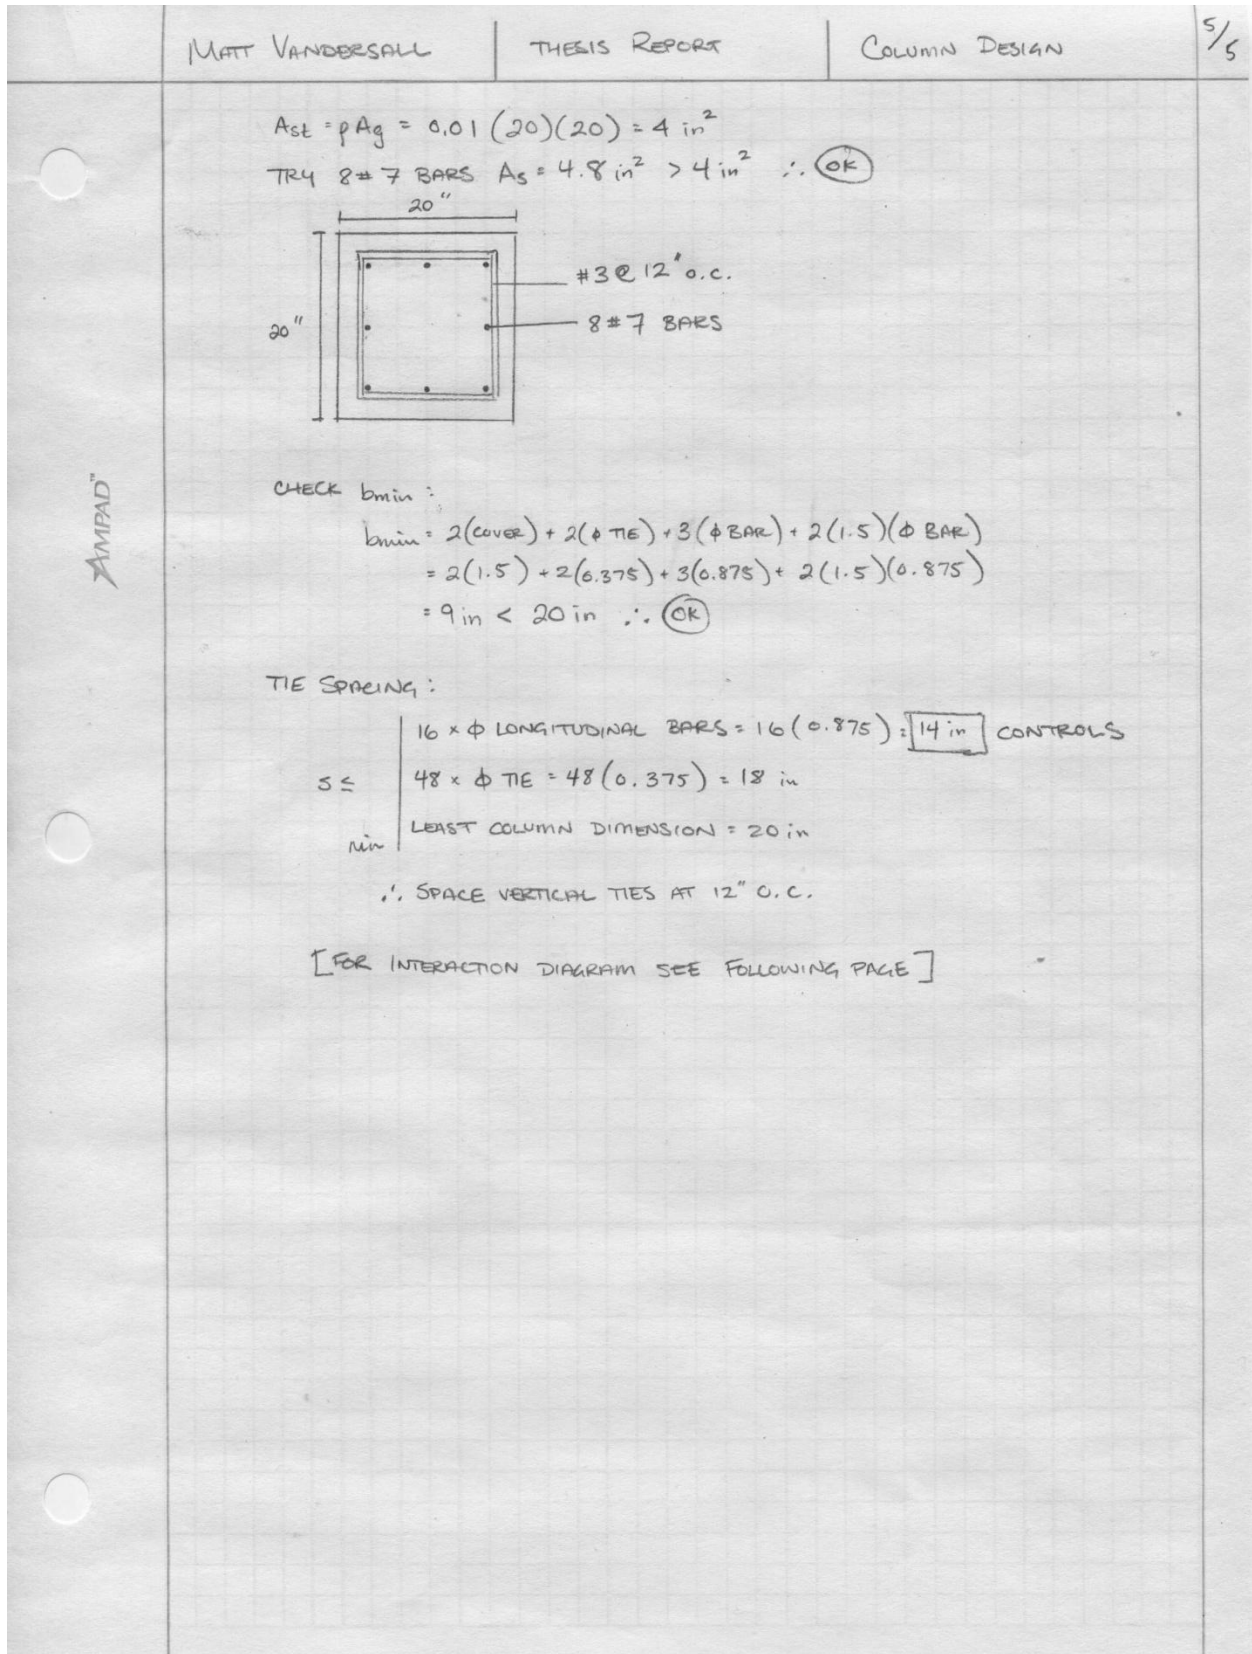 MATT VANDERSALL THESIS REPORT COLUMN DESIGN 5/5
Ast = ρAg = 0.01 (20)(20) = 4 in²
TRY 8#7 BARS As = 4.8 in² > 4 in² ∴ OK
20"
#3@12" o.c.
20"
8#7 BARS
AMPAD™
CHECK bmin :
bmin = 2(COVER) + 2(φ TIE) + 3(φ BAR) + 2(1.5)(φ BAR)
= 2(1.5) + 2(0.375) + 3(0.875) + 2(1.5)(0.875)
= 9 in < 20 in ∴ OK
TIE SPACING :
16 × φ LONGITUDINAL BARS = 16(0.875) = 14 in CONTROLS
s ≤ 48 × φ TIE = 48(0.375) = 18 in
min LEAST COLUMN DIMENSION = 20 in
∴ SPACE VERTICAL TIES AT 12" O.C.
[FOR INTERACTION DIAGRAM SEE FOLLOWING PAGE]